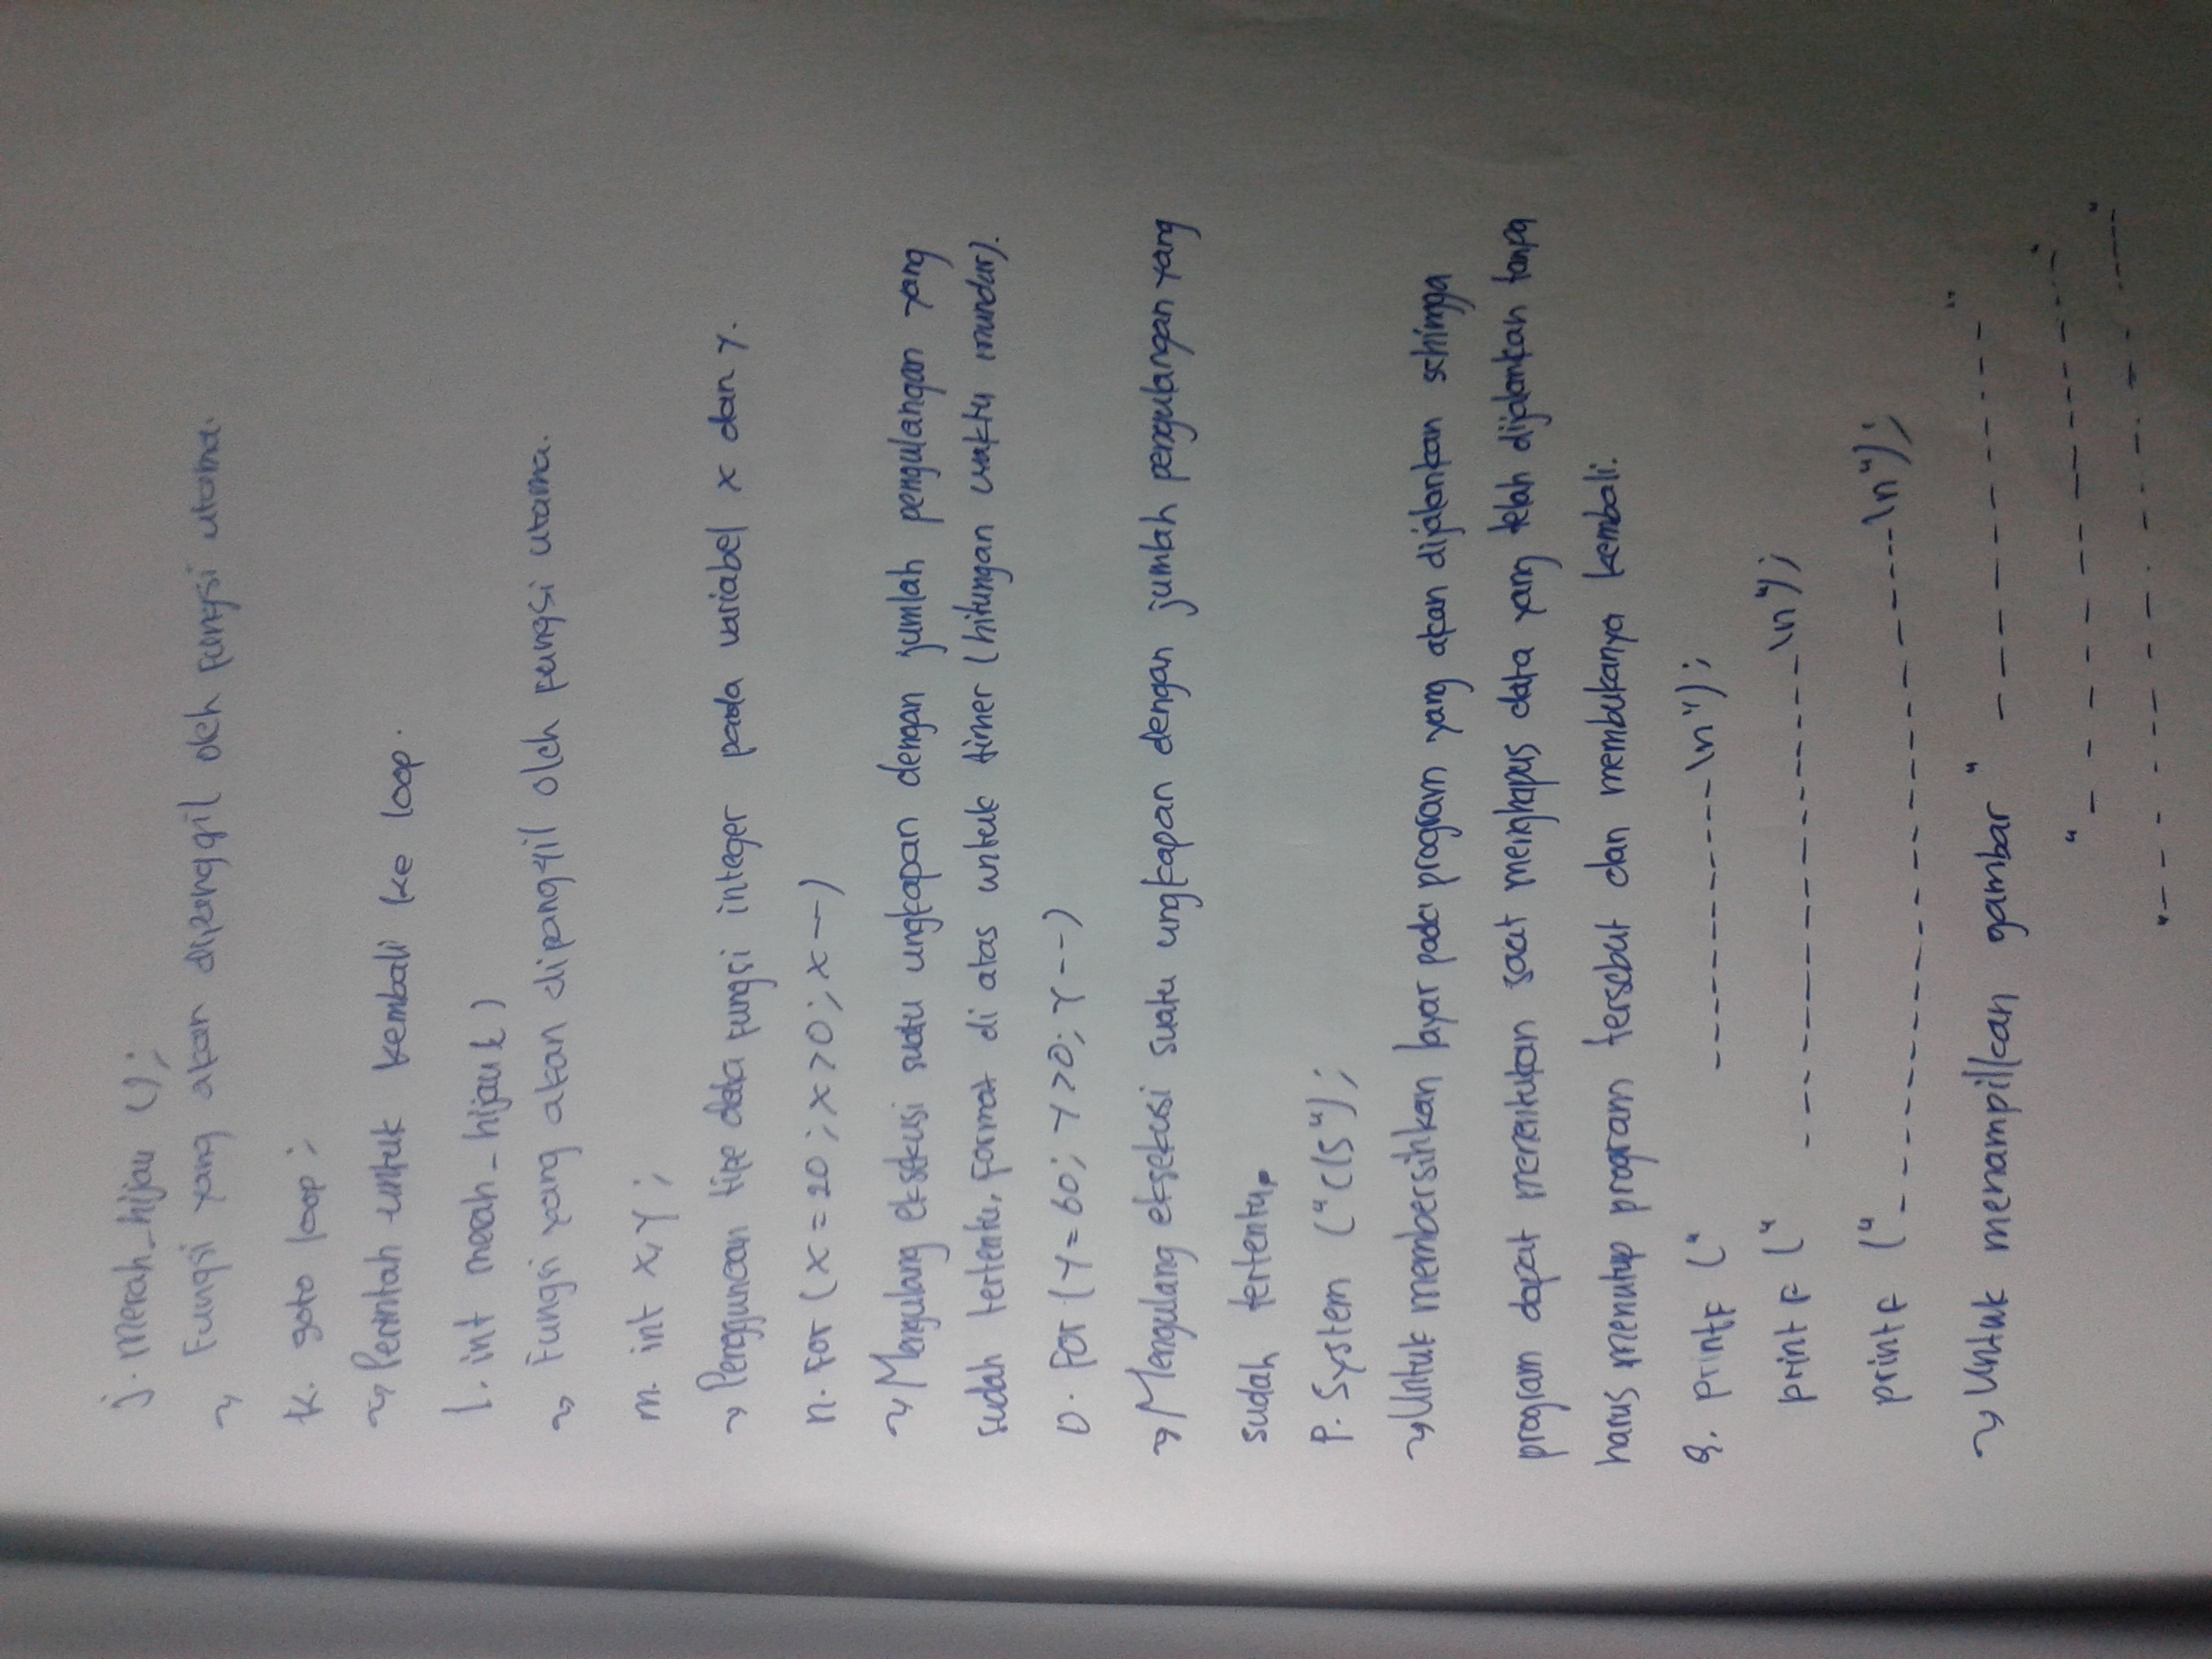 j. Merah_hijau ();
↝ Fungsi yang akan dipanggil oleh fungsi utama.
k. goto loop;
↝ Perintah untuk kembali ke loop.
l. int merah_hijau ( )
↝ Fungsi yang akan dipanggil oleh fungsi utama.
m. int x,y;
↝ Penggunaan tipe data fungsi integer pada variabel x dan y.
n. For (x=20; x>0; x--)
↝ Mengulang eksekusi suatu ungkapan dengan jumlah pengulangan yang
sudah tertentu, format di atas untuk timer (hitungan waktu mundur).
o. For (y=60; y>0; y--)
↝ Mengulang eksekusi suatu ungkapan dengan jumlah pengulangan yang
sudah tertentu.
p. System ("cls");
↝ Untuk membersihkan layar pada program yang akan dijalankan sehingga
program dapat menentukan saat menghapus data yang telah dijalankan tanpa
harus menutup program tersebut dan membukanya kembali.
q. printf ("        ------------\n");
printf ("    ------------------\n");
printf ("------------------------\n");
↝ Untuk menampilkan gambar "------------"
"--------------"
"----------------"